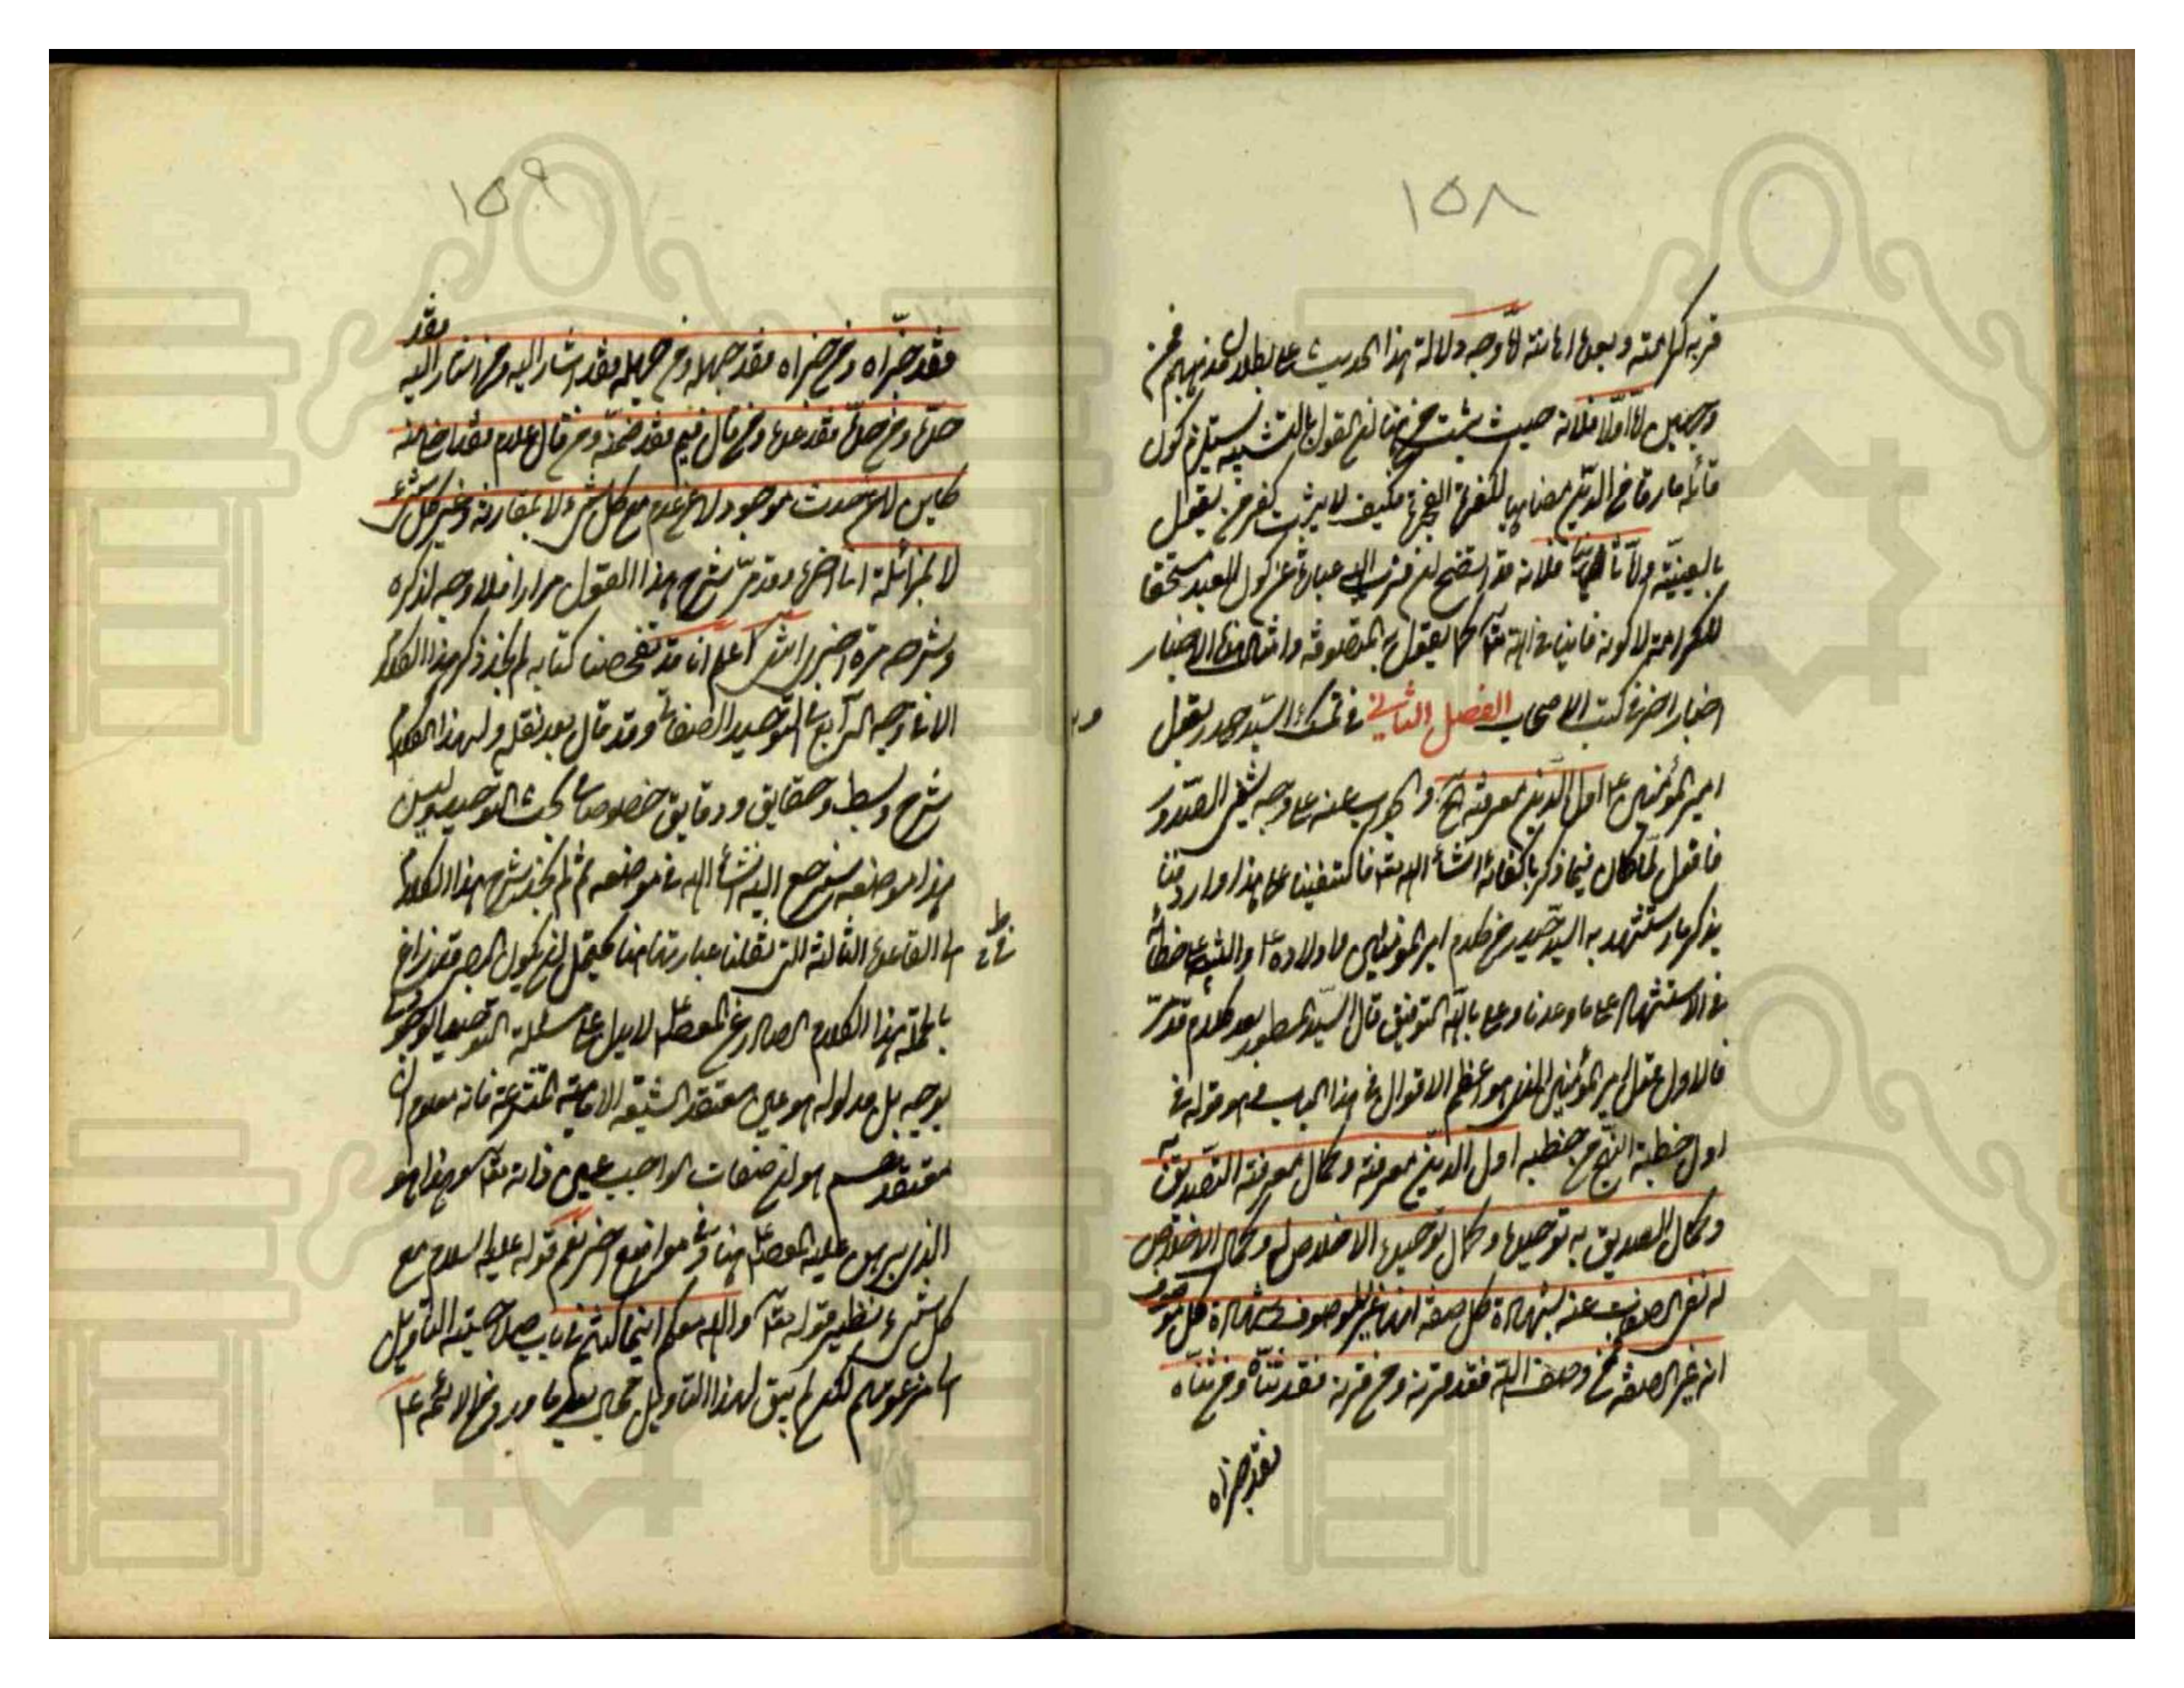 ١٥٨
قربه كرامته وبعده اهانته لا وجه دلالة هذا الحديث على بطلان مذهبهم فمن
وجهين اما اولا فلانه حيث ثبت من هنا ان القول بالتشبيه يستلزم كون
قائله مارقا من الدين مضاهيا للكفرة الفجرة فكيف لا يثبت كفر من يقول
بالعينية واما ثانيا فلانه قد اتضح ان قرب الله عبارة عن كون العبد مستحقا
للكرامة لا كونه فانيا في الله تعالى كما يقول به المتصوفة وامثال هذه الاخبار
اخبار اخر في كتب الاصحاب الفصل الثاني في تمسك السيد حيدر بقول
امير المؤمنين ع اول الدين معرفته والجواب عنه على وجه يشفي الصدور
فاقول لما كان فيما ذكر باكفاية انشاء الله تعالى فاكتفينا على هذا واردفنا
بذكر ما استشهد به السيد حيدر من كلام امير المؤمنين و اولاده ع
في الاستشهاد على ما وعدنا وعلى بالله التوفيق قال السيد المسطور بعد كلام قد مر
فالاول عقل امير المؤمنين الذي هو اعظم الاقوال في هذا الباب هو قوله في
اول خطبة النهج من خطبه اول الدين معرفته وكمال معرفته التصديق به
وكمال التصديق به توحيده وكمال توحيده الاخلاص له وكمال الاخلاص
له نفي الصفات عنه لشهادة كل صفة انها غير الموصوف وشهادة كل موصوف
انه غير الصفة فمن وصف الله فقد قرنه ومن قرنه فقد ثناه ومن ثناه
فقد جزاه
١٥٩
فقد جزاه ومن جزاه فقد جهله ومن جهله فقد اشار اليه ومن اشار اليه فقد
حده ومن حده فقد عده ومن قال فيم فقد ضمنه ومن قال علام فقد اخلى منه
كاين لا عن حدث موجود لا عن عدم مع كل شيء لا بمقارنة وغير كل شيء
لا بمزائلة انا اقول وقد مر شرح هذا القول مرارا فلا وجه لذكره
وشرحه مرة اخرى انتهى اعلم انا قد تفحصنا كتابه لم نجد ذكر هذا الكلام
الا في الوجه الرابع في التوحيد الصفاتي وقد قال بعد نقله ولهذا الكلام
شرح وبسط وحقايق ودقايق خصوصا في بحث التوحيد وليس
هذا موضعه سنرجع اليه انشاء الله في موضعه ثم لم نجد شرح هذا الكلام
اما القاعدة الثالثة التي نقلنا عبارتها هنا فيحتمل ان يكون البصر قد زاغ
بالجملة هذا الكلام الصادر عن المعصوم لا يدل على مسئلة التوحيد الوجودي
بوجه بل مدلوله هو عين معتقد الشيعة الامامية المتشرعة فانه معلوم ان
معتقدهم هو ان صفات الواجب عين ذاته تعالى وهذا هو
الذي يبرهن عليه المعصوم هنا وفي مواضع اخر نعم قوله عليه السلام مع
كل شيء نظير قوله تعالى والله معكم اينما كنتم في باب صلاحيته التاويل
الى مزعومهم لكن لم يبق لهذا التاويل مجال بعد ما ورد من الائمة ع